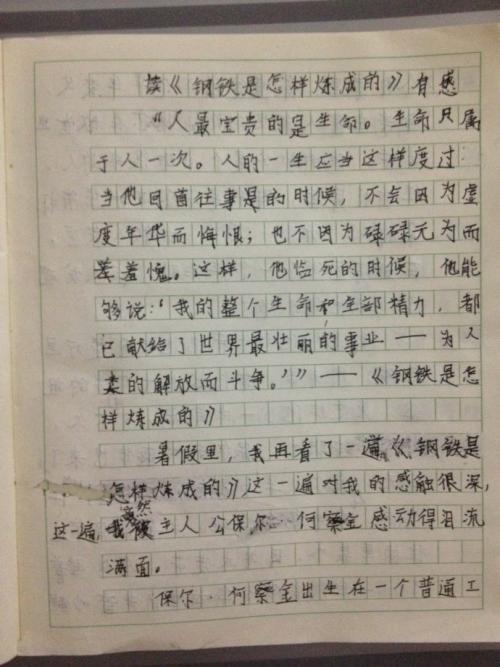 读《钢铁是怎样炼成的》有感
“人最宝贵的是生命。生命只属
于人一次。人的一生应当这样度过:
当他回首往事是的时候,不会因为虚
度年华而悔恨;也不因为碌碌无为而
羞愧。这样,他临死的时候,他能
够说:‘我的整个生命和全部精力,都
已献给了世界最壮丽的事业——为人
类的解放而斗争。’”——《钢铁是怎
样炼成的》
暑假里,我再看了一遍《钢铁是
怎样炼成的》这一遍对我的感触很深,
这一遍,我竟然被主人公保尔·何察金感动得泪流
满面。
保尔·何察金出生在一个普通工